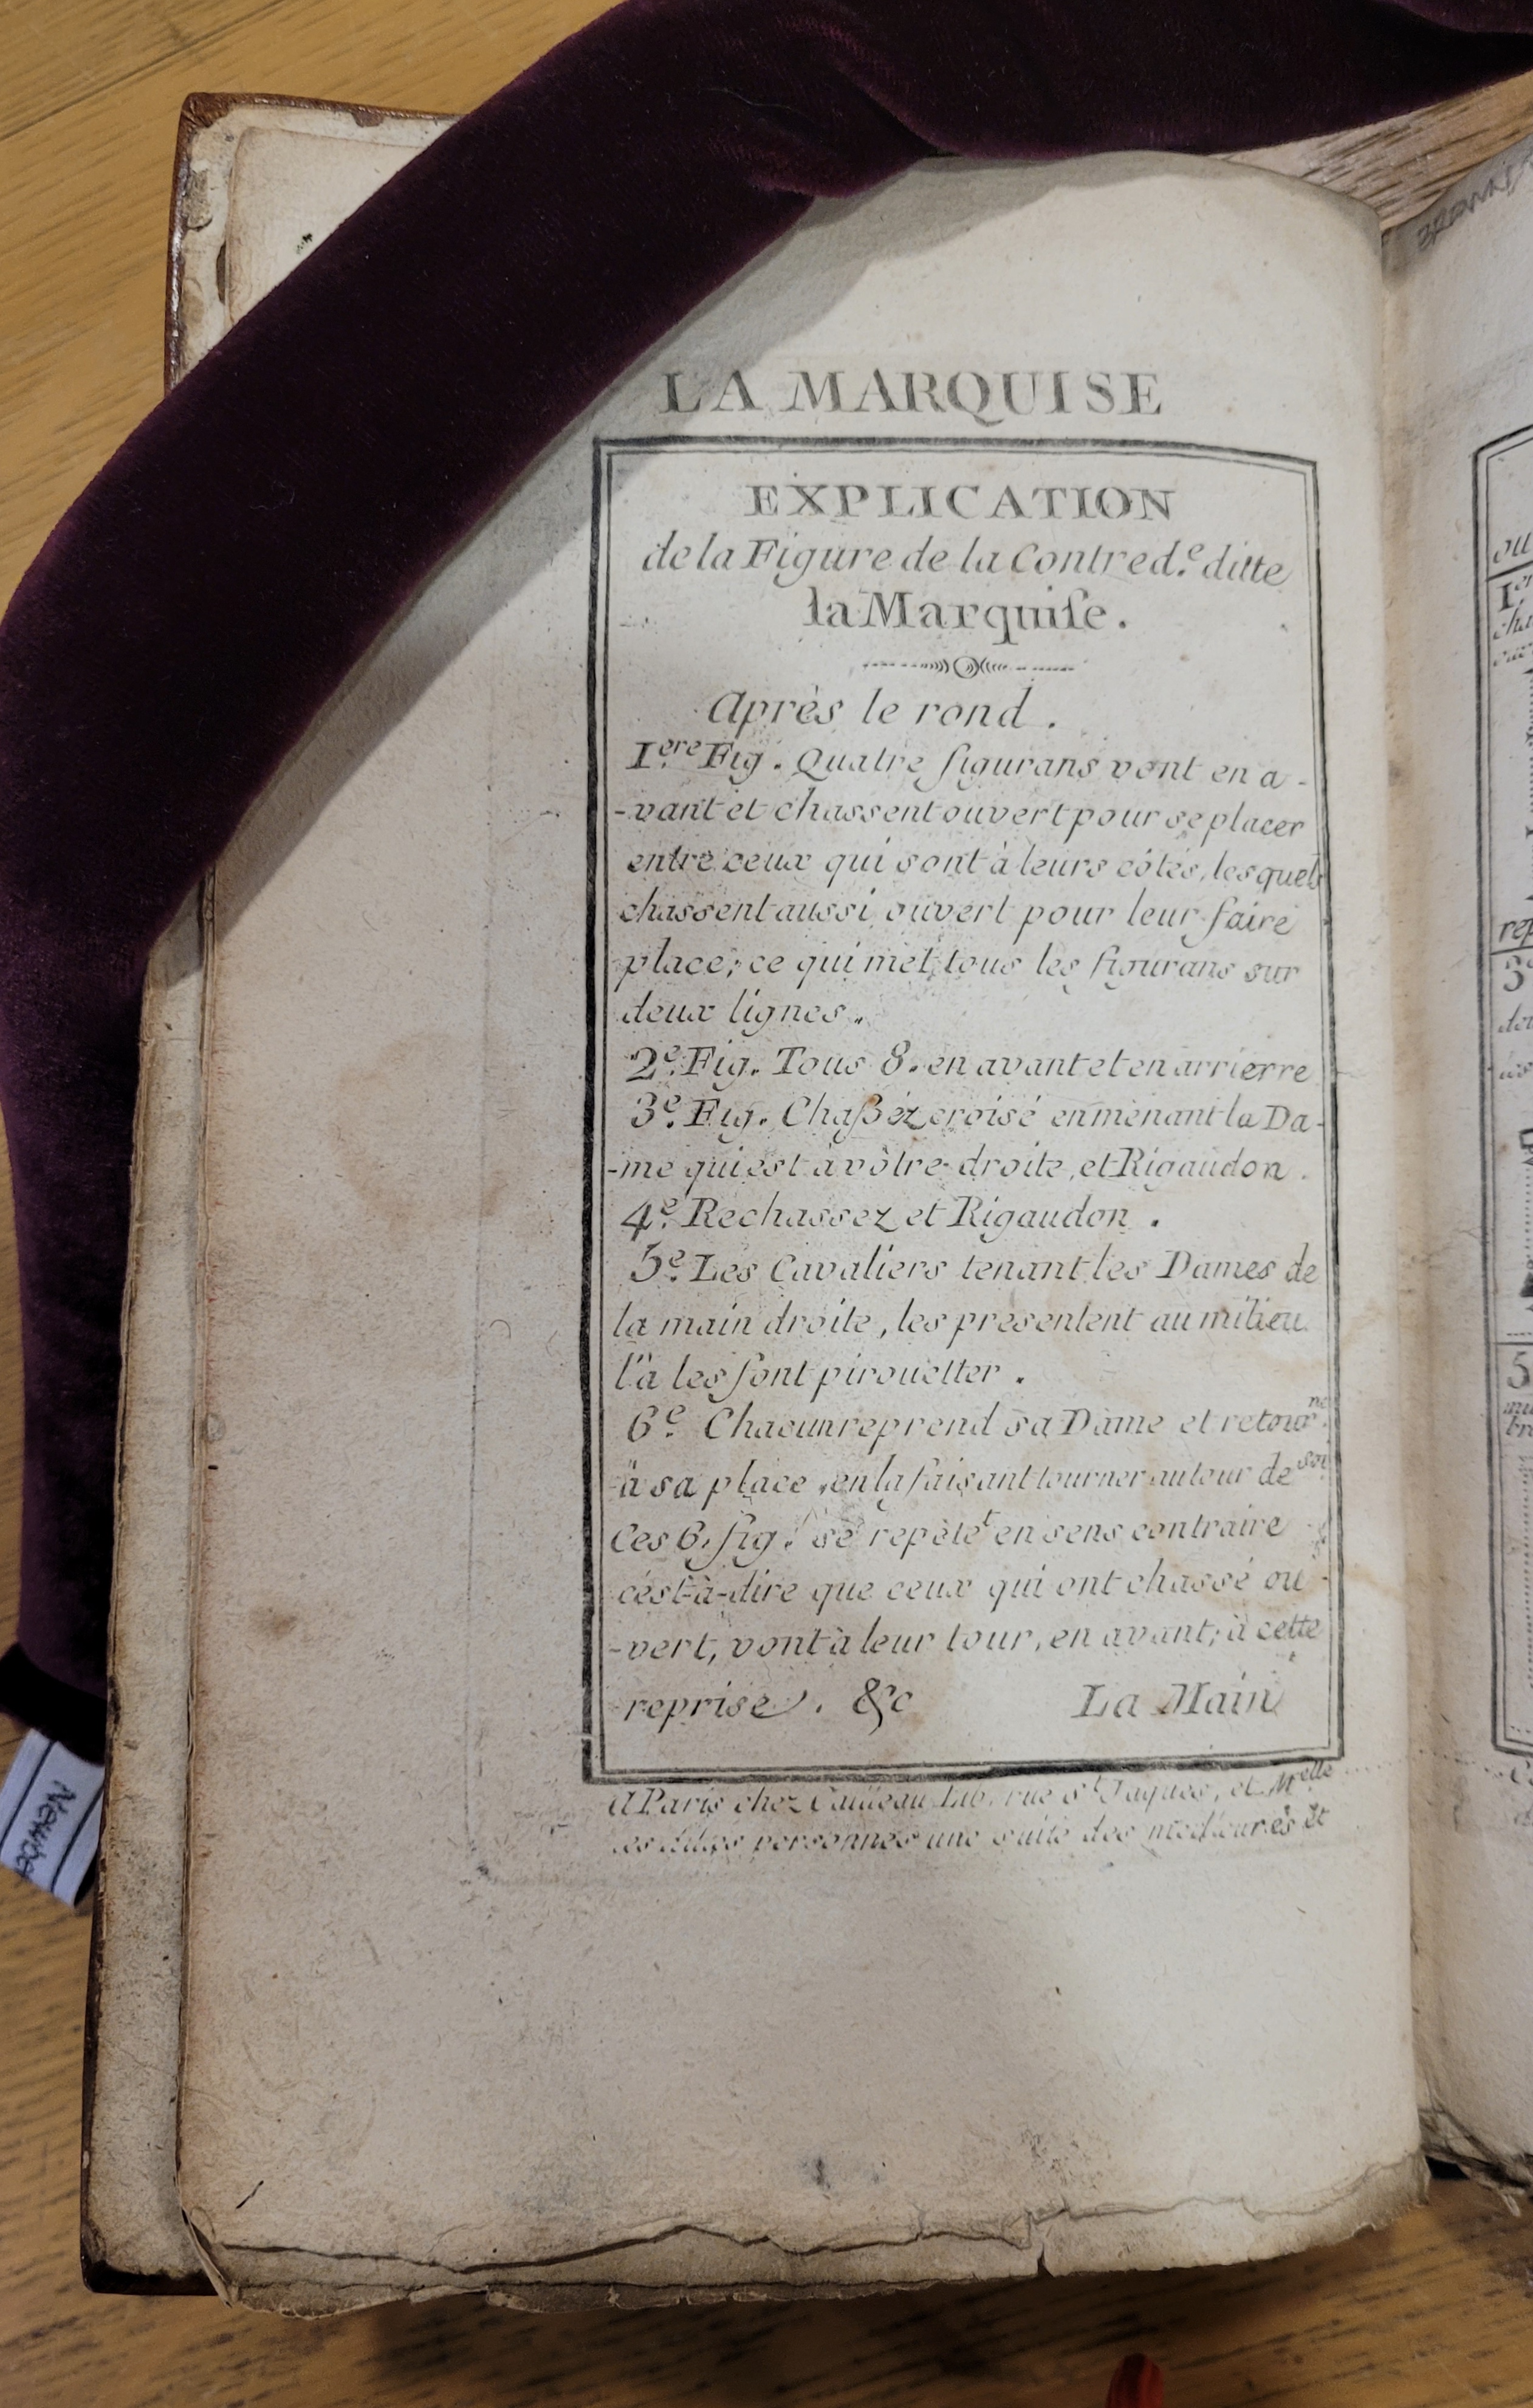 LA MARQUISE
EXPLICATION
de la Figure de la Contred.e ditte
la Marquiſe.
Après le rond.
1.ere Fig. Quatre figurans vont en a-
-vant et chassent ouvert pour se placer
entre ceux qui sont à leurs côtés, lesquels
chassent aussi ouvert pour leur faire
place; ce qui met tous les figurans sur
deux lignes.
2.e Fig. Tous 8. en avant et en arrierre
3.e Fig. Chaßéz croisé en menant la Da-
-me qui est à vôtre droite, et Rigaudon.
4.e Rechassez et Rigaudon.
5.e Les Cavaliers tenant les Dames de
la main droite, les presentent au milieu
là les font pirouetter.
6.e Chacun reprend sa Dame et retour.ne
à sa place, en la faisant tourner autour de soi
Ces 6. fig. se repète.t en sens contraire
c'est-à-dire que ceux qui ont chassé ou-
-vert, vont à leur tour, en avant, à cette
reprise. &c La Main
A Paris chez Lib. rue S.t Jaques, et M.elle
personnes une suite des meilleures et
BROWN
ou
1.er
cha
rep
3
5
Newbe